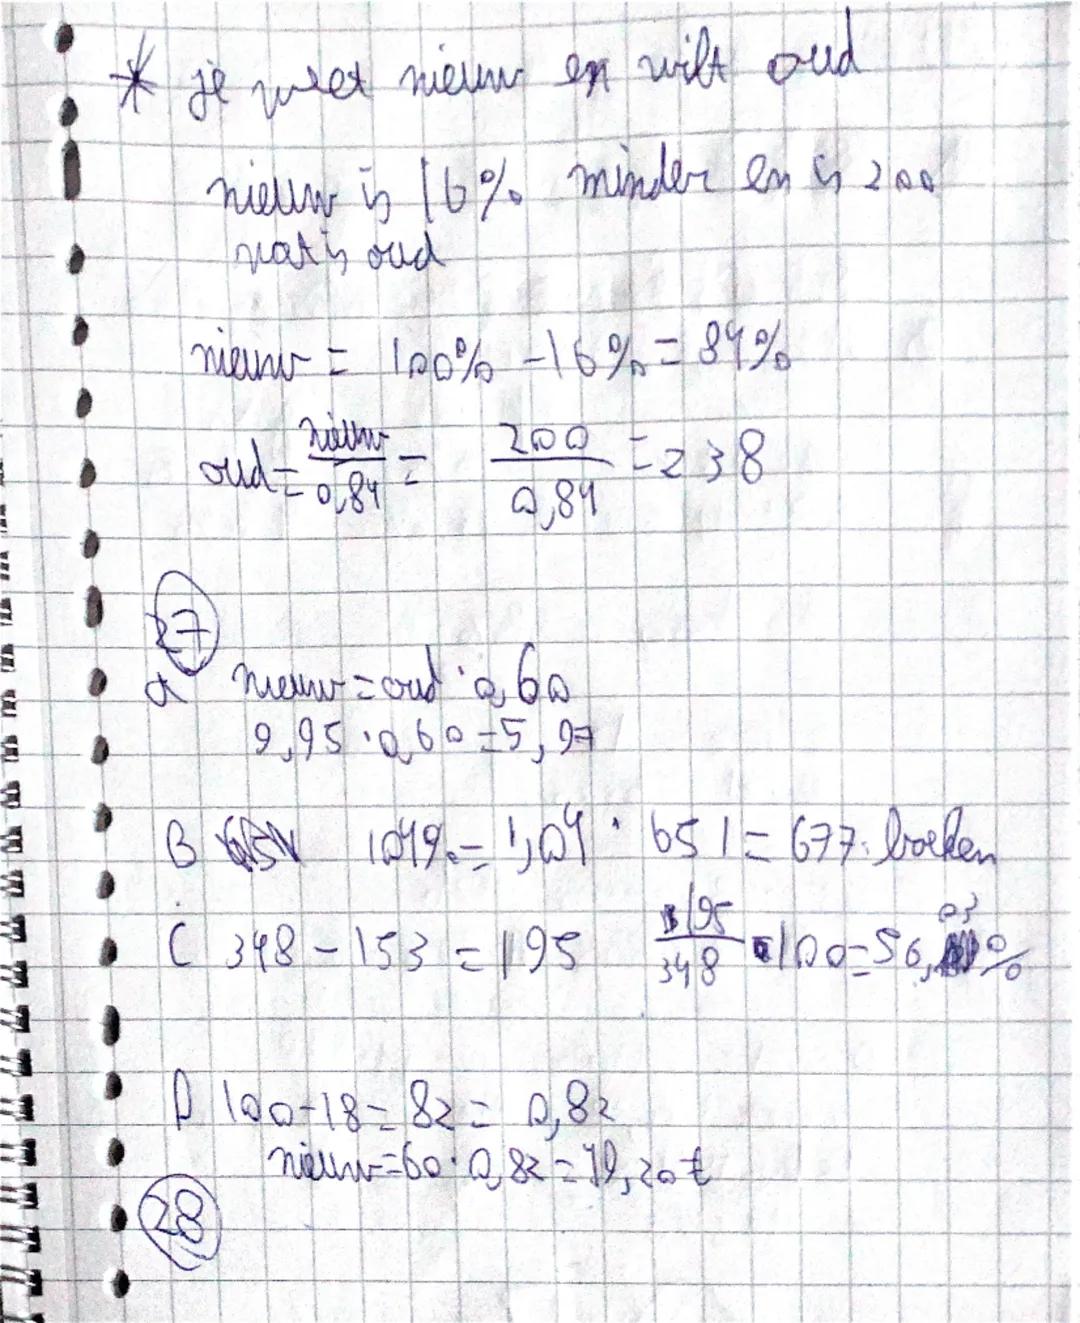 * je weet nieuw en wilt oud
nieuw is 16% minder en is 200
wat is oud
nieuw = 100% - 16% = 84%
oud = nieuw/0,84 = 200/0,84 = 238
27
a nieuw = oud · 0,60
9,95 · 0,60 = 5,97
B 104% = 1,04 · 651 = 677 boeken
C 348 - 153 = 195 195/348 · 100 = 56,03%
D 100 - 18 = 82 = 0,82
nieuw = 60 · 0,82 = 49,20 €
28